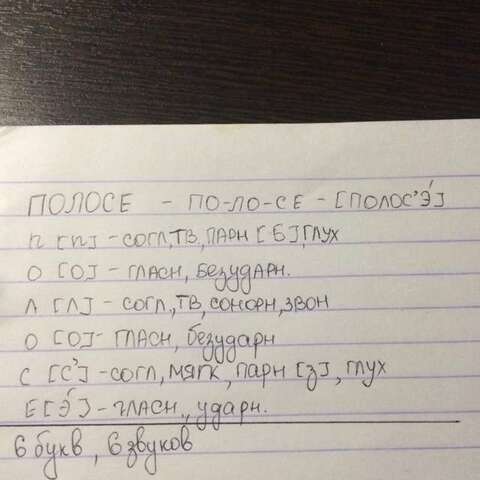 ПОЛОСЕ - ПО-ЛО-СЕ - [ПОЛОС'Э́]
П [П] - СОГЛ, ТВ, ПАРН [Б], ГЛУХ
О [О] - ГЛАСН, БЕЗУДАРН.
Л [Л] - СОГЛ, ТВ, СОНОРН, ЗВОН
О [О] - ГЛАСН, безударн
С [С'] - СОГЛ, МЯГК, ПАРН [З], ГЛУХ
Е [Э́] - ГЛАСН, ударн.
6 букв, 6 звуков